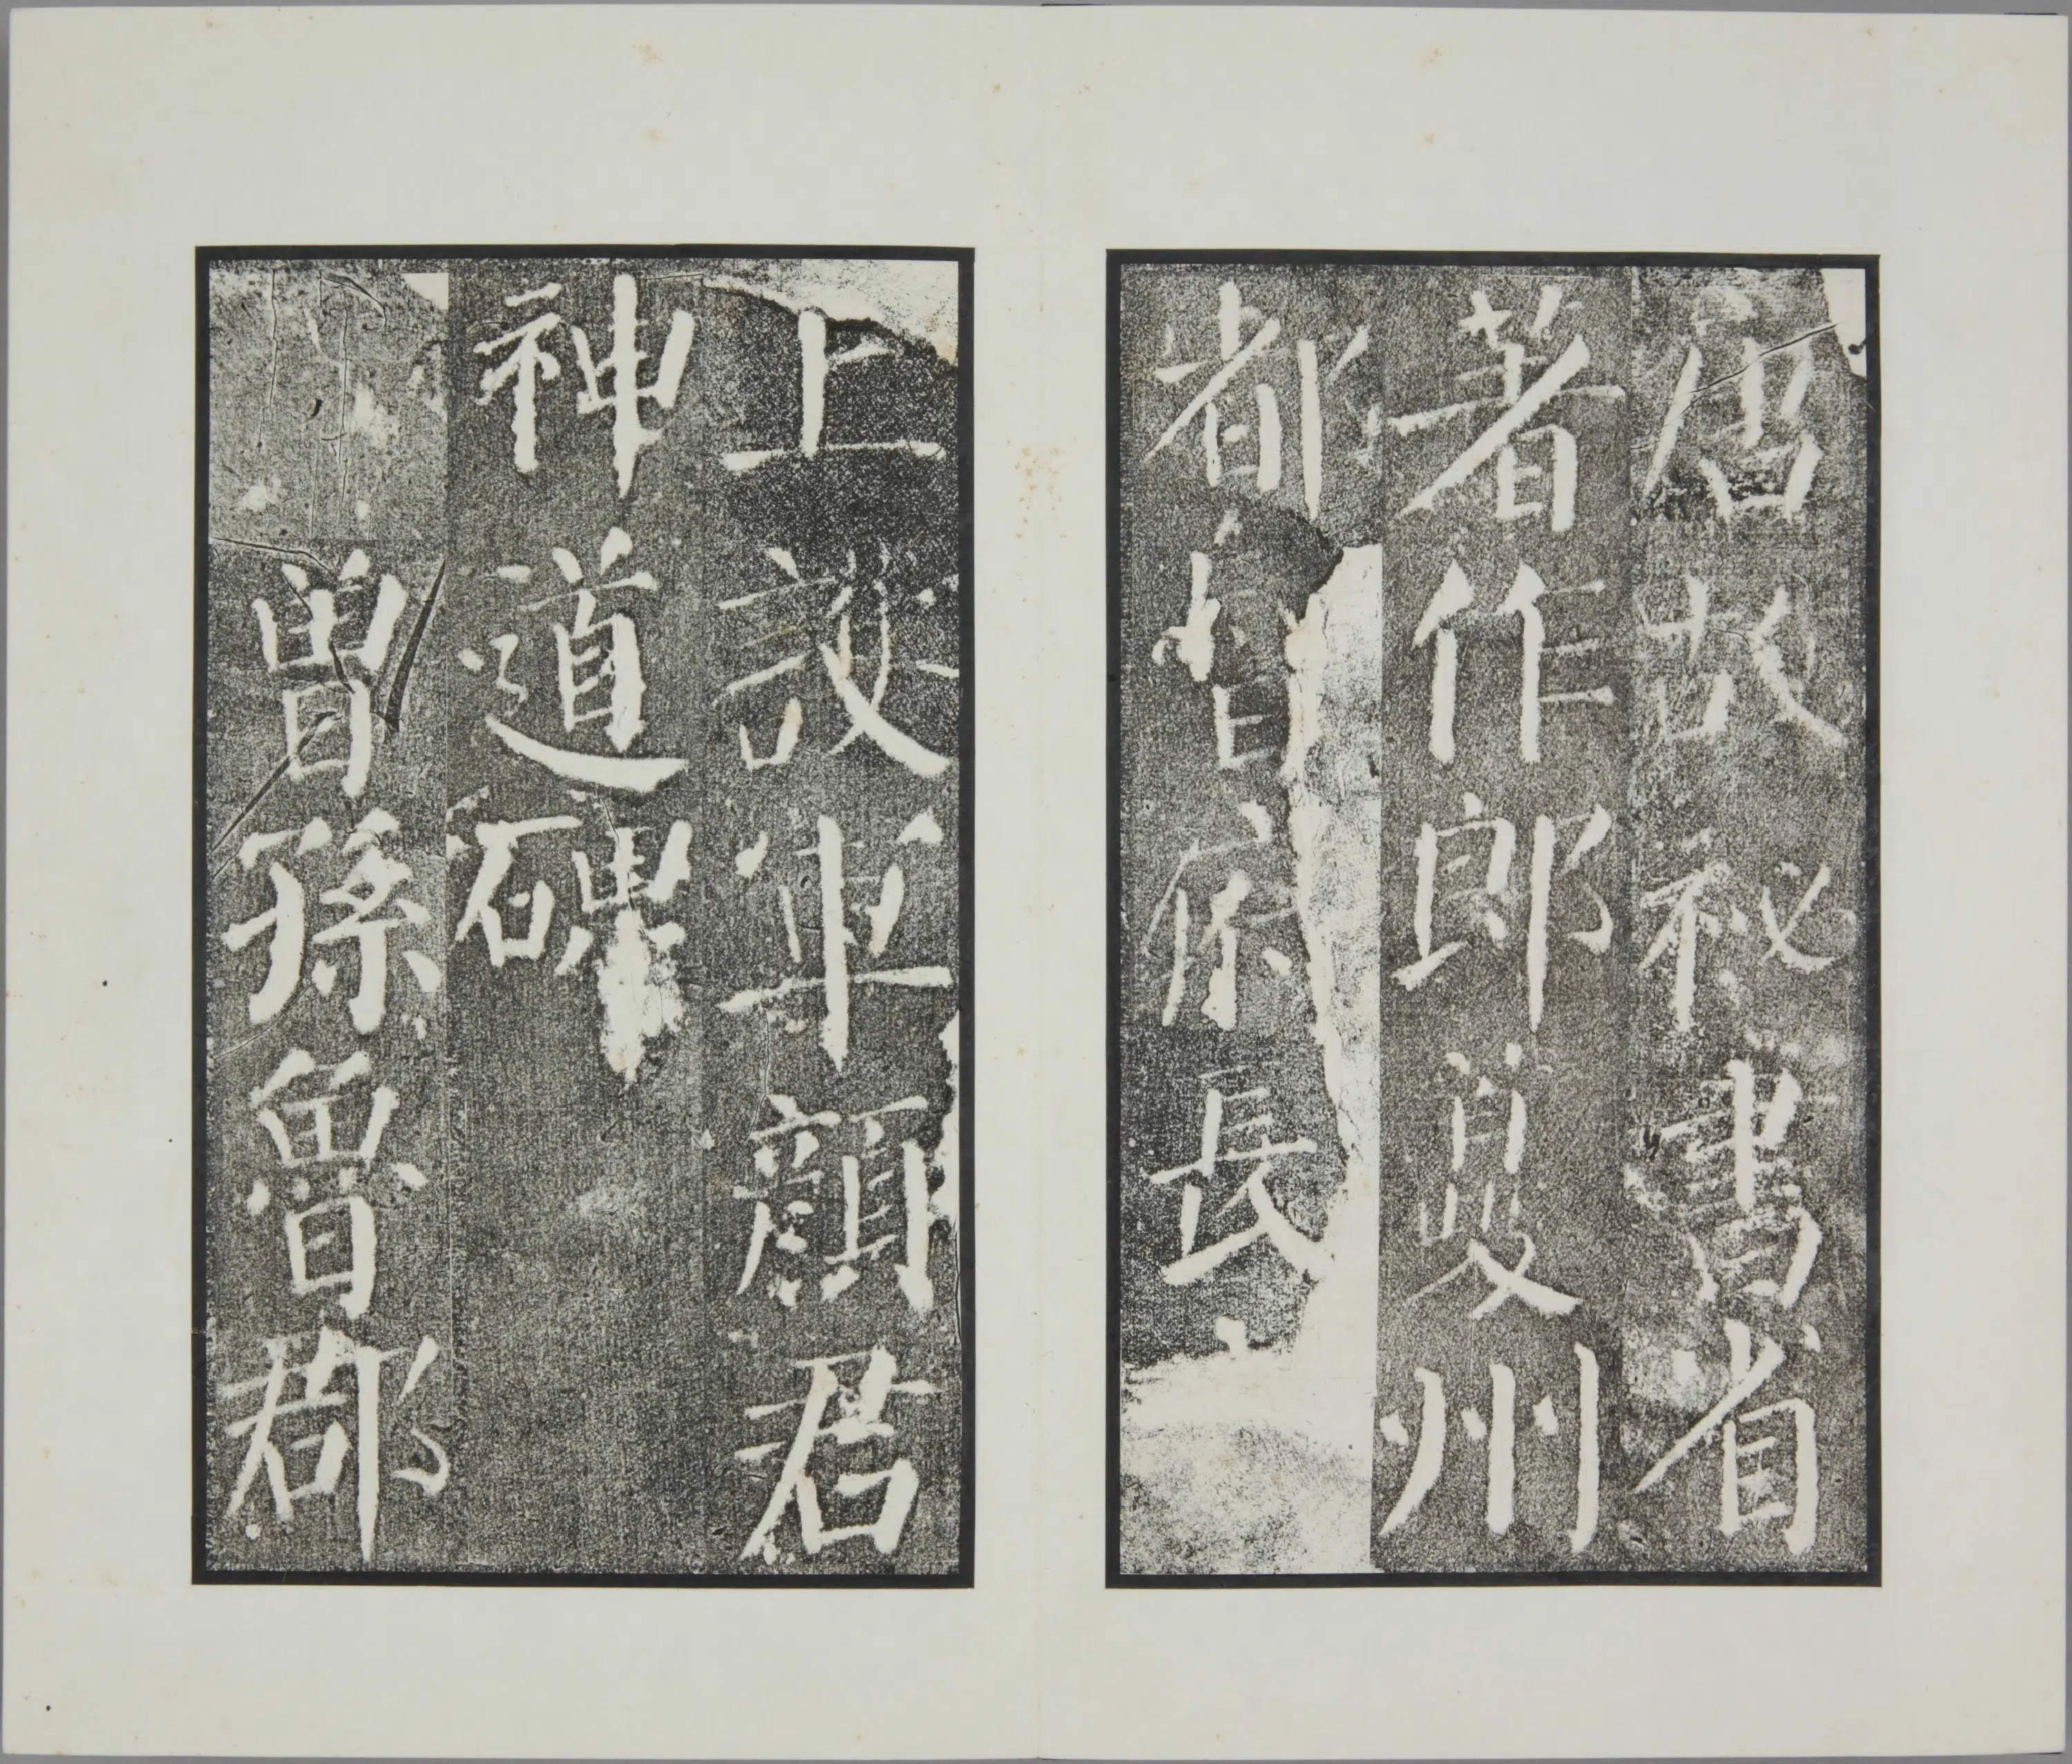 唐故秘書省
著作郎夔州
都督府長
上護軍顏君
神道碑
曾孫魯郡